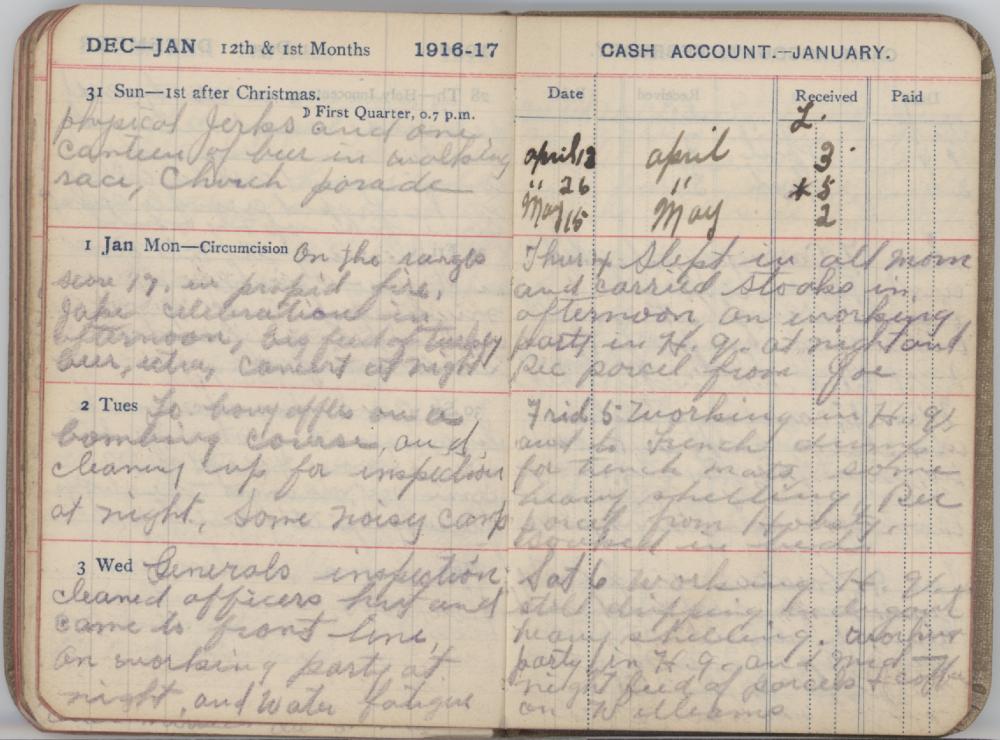 DEC—JAN 12th & 1st Months 1916-17
31 Sun—1st after Christmas.
First Quarter, 0.7 p.m.
physical Jerks and one
canteen of beer in walking
race, Church parade
1 Jan Mon—Circumcision On the ranges
score 17. in rapid fire,
Jake celebration in
afternoon, big feed of turkey
beer, extra, concert at night
2 Tues To bouy offles on a
bombing course, and
cleaning up for inspection
at night, Some noisy camp
3 Wed Generals inspection
cleaned officers hut and
came to front line,
on working party at
night, and water fatigue
CASH ACCOUNT.—JANUARY.
Date Received Paid
L.
april 12 april 3
" 26 " * 5
May 15 May 2
Thur 4 Slept in all morn
and carried stooks in
afternoon on working
party in H. q. at night and
Rec parcel from Joe
Frid 5 working in H. q.
and to Trench dump
for trench mats some
heavy shelling, Rec
parcel from
in
Sat 6 working H. q.
still dripping in dugout
heavy shelling. working
party in H. q. and mid
night feed of parcels + coffee
on Williams